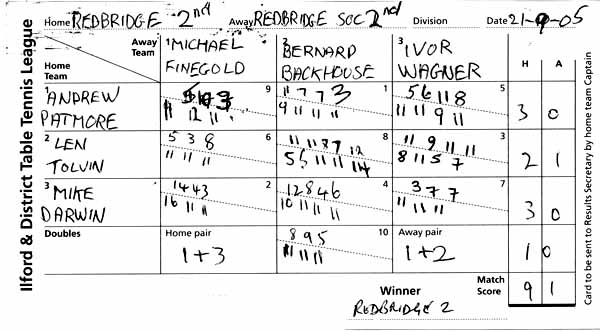 Ilford & District Table Tennis League
Home REDBRIDGE 2nd Away REDBRIDGE SOC 2nd Division Date 21-9-05
Away Team 1 MICHAEL FINEGOLD 2 BERNARD BACKHOUSE 3 IVOR WAGNER H A
Home Team
1 ANDREW PATMORE 9 1 5 3 0
11 7 7 3 5 6 11 8
11 12 11 9 11 11 11 11 11 9 11
2 LEN TOLVIN 6 8 3 2 1
5 3 8 11 11 8 7 12 11 9 11 11
11 11 11 5 5 11 11 14 8 11 5 7
3 MIKE DARWIN 2 4 7 3 0
14 4 3 12 8 4 6 3 7 7
16 11 11 10 11 11 11 11 11 11
Doubles Home pair 1+3 10 Away pair 1+2 1 0
8 9 5
11 11 11
Winner REDBRIDGE 2 Match Score 9 1
Card to be sent to Results Secretary by home team Captain